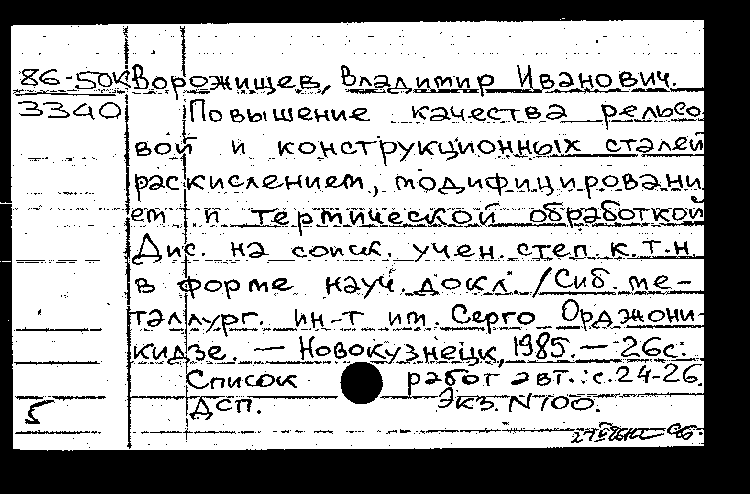 86-50к Ворожищев, Владимир Иванович.
3340 Повышение качества рельсо
вой и конструкционных сталей
раскислением, модифицировани
ем и термической обработкой
Дис. на соиск. учен. степ. к.т.н.
в форме науч. докл. /Сиб. ме-
таллург. ин-т им. Серго Орджони-
кидзе. — Новокузнецк, 1985. — 26с.
Список работ авт.: с.24-26.
5 ДСП. Экз. N100.